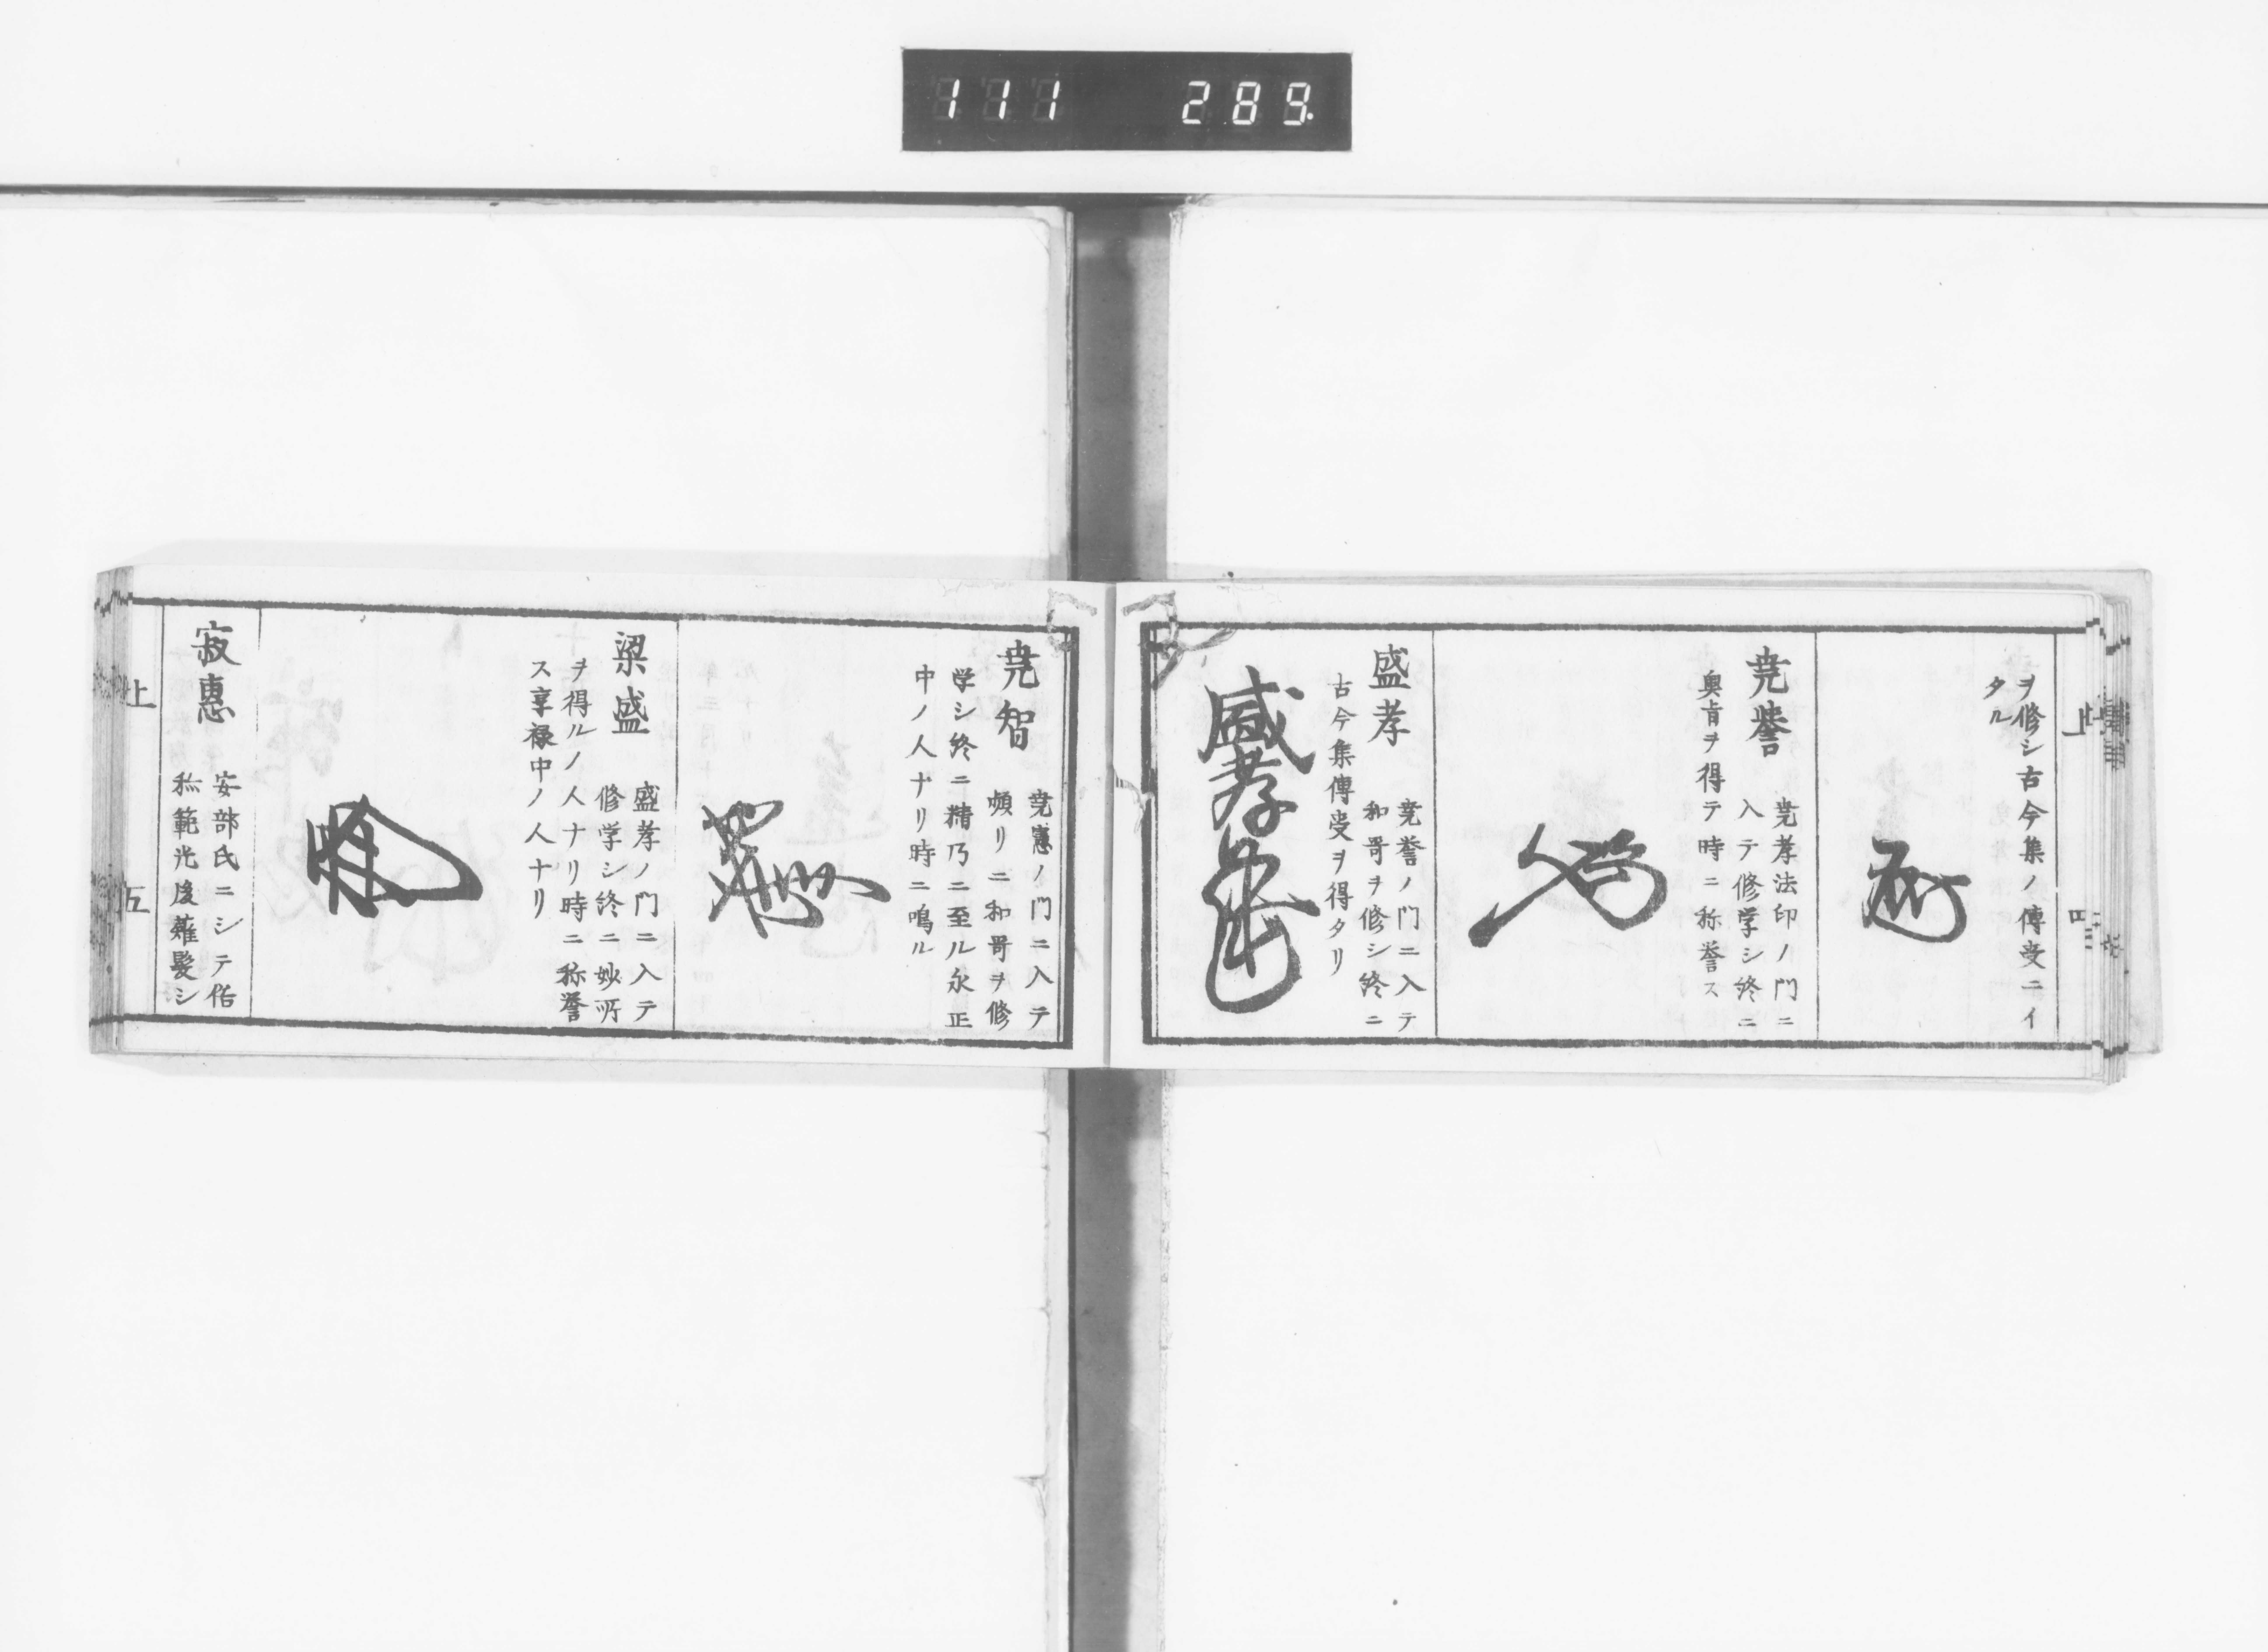 111 289
上
四
ヲ修シ古今集ノ傳受ニイ
タル
尭誉
尭孝法印ノ門ニ
入テ修学シ終ニ
奥旨ヲ得テ時ニ称誉ス
盛孝
尭誉ノ門ニ入テ
和哥ヲ修シ終ニ
古今集傳受ヲ得タリ
盛孝
尭智
尭憲ノ門ニ入テ
頻リニ和哥ヲ修
学シ終ニ精乃ニ至ル永正
中ノ人ナリ時ニ鳴ル
梁盛
盛孝ノ門ニ入テ
修学シ終ニ妙所
ヲ得ルノ人ナリ時ニ称誉
ス享禄中ノ人ナリ
寂恵
安部氏ニシテ俗
称範光後薙髪シ
上
五